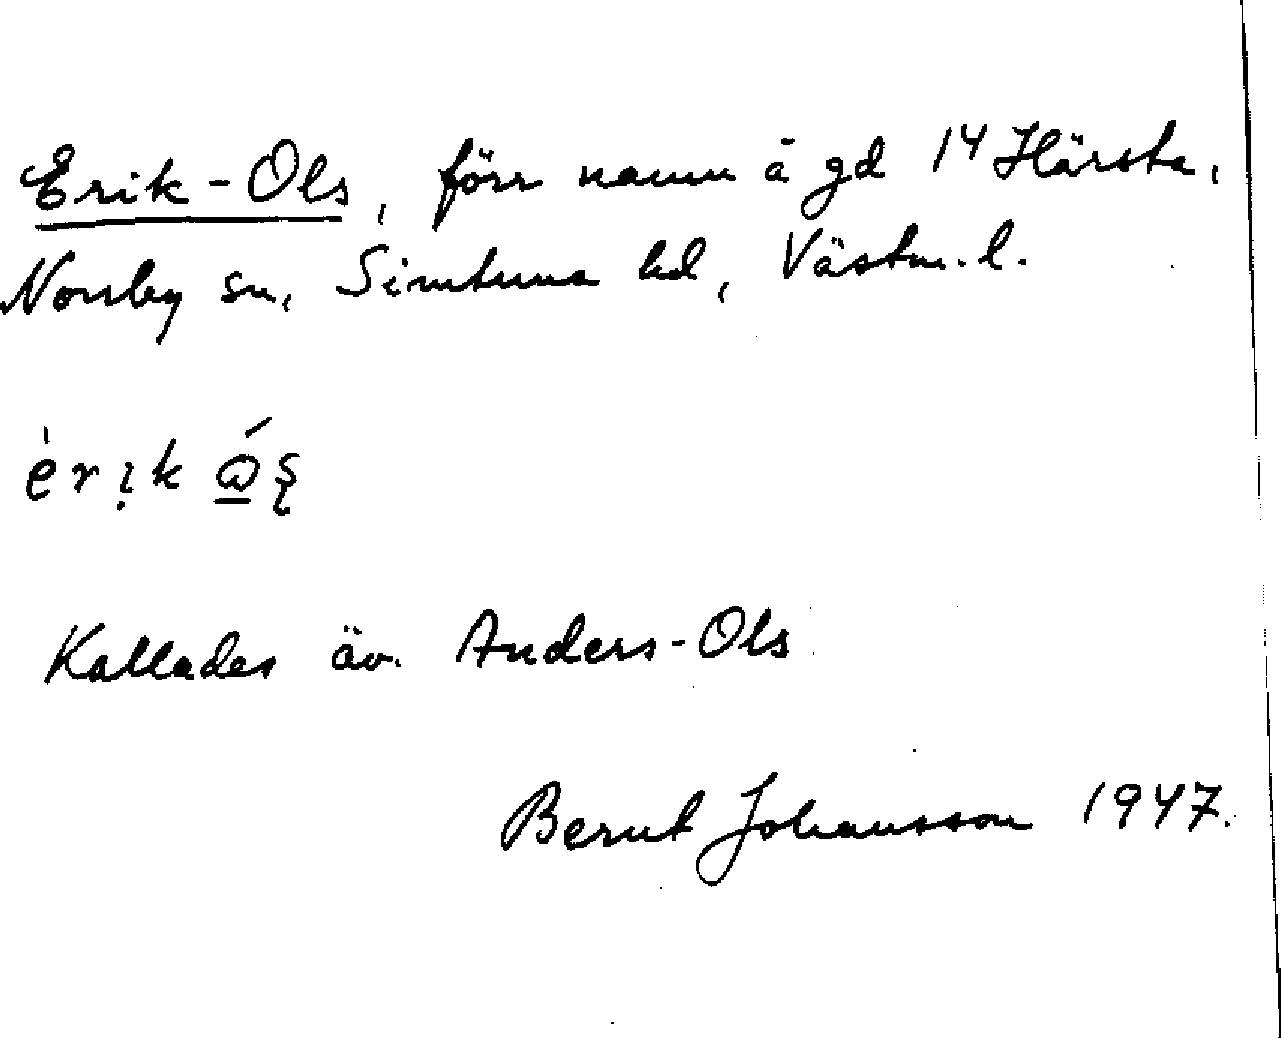 Erik-Ols, förr namn å gd 1⁴ Härsta,
Norrby sn, Simtuna hd, Västm. l.
èrịk
Kallades äv. Anders-Ols
Bernt Johansson 1947.